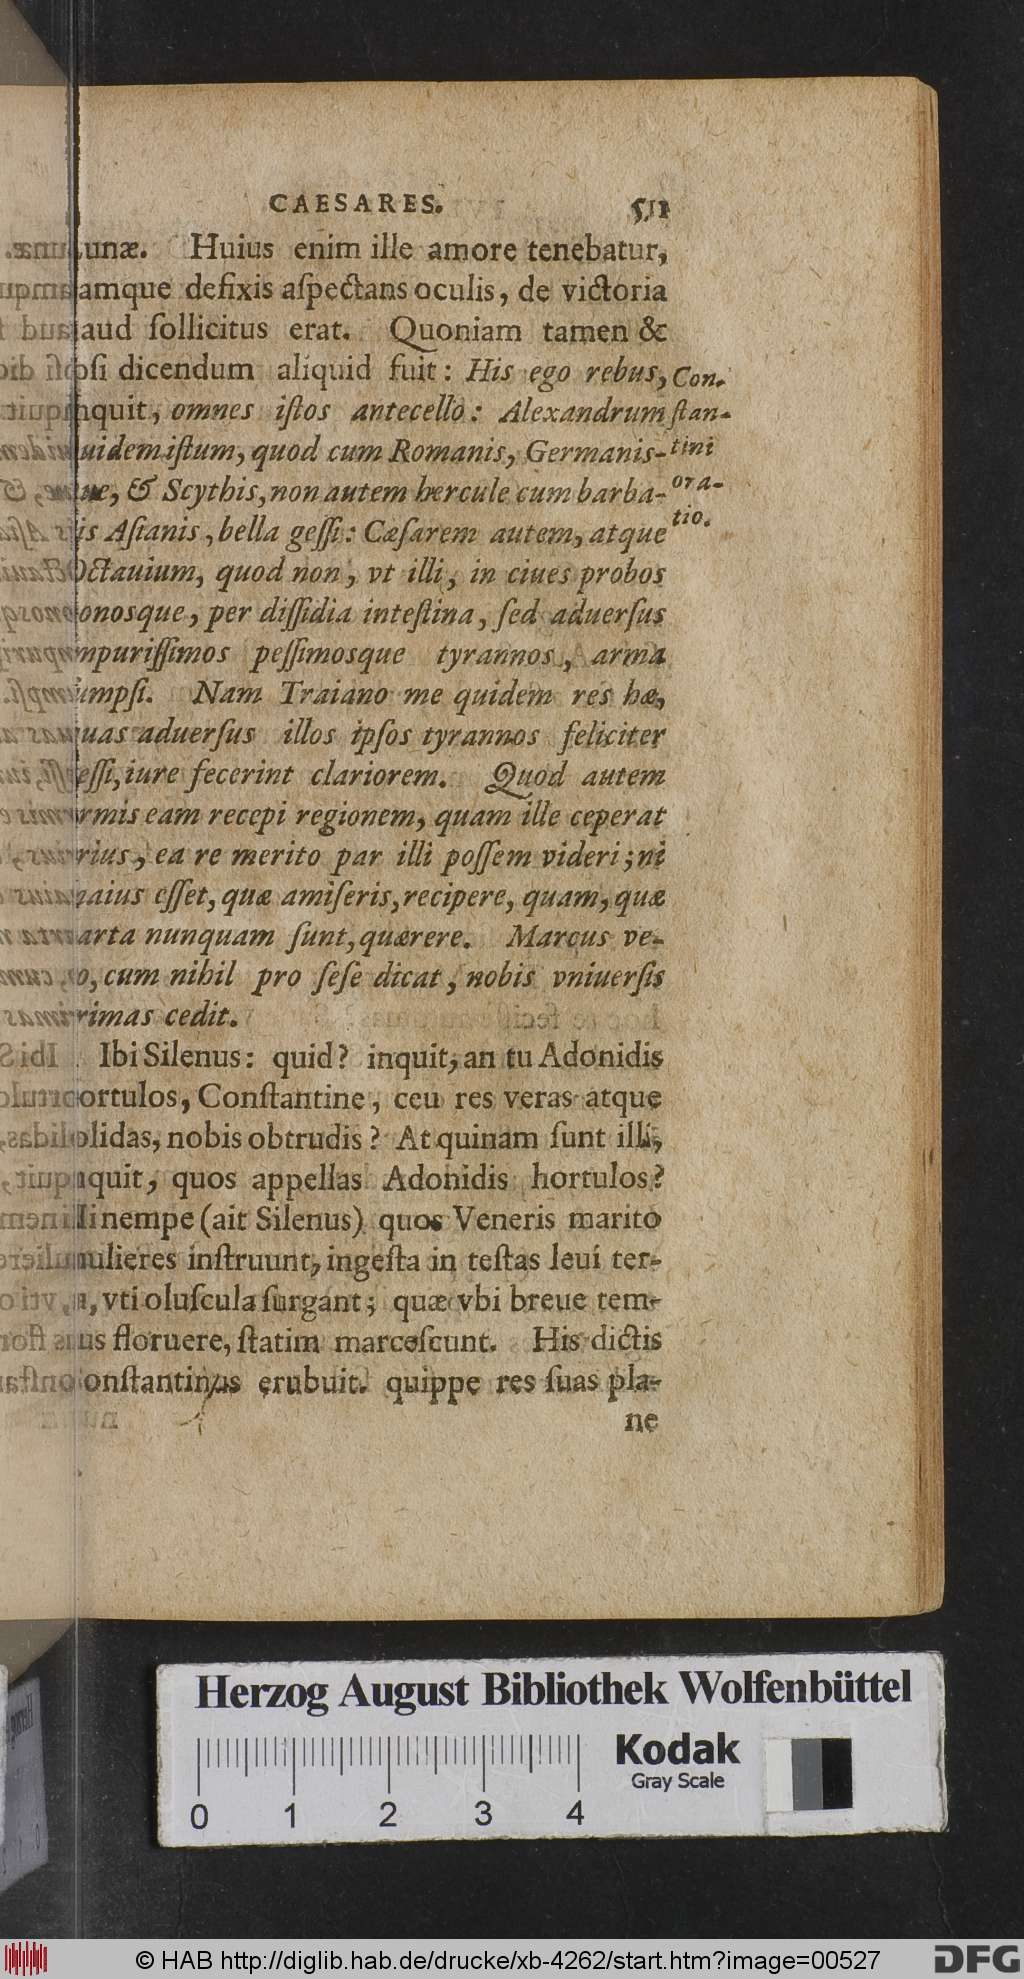 CAESARES. 511
unæ. Huius enim ille amore tenebatur,
amque defixis aſpectans oculis, de victoria
aud ſollicitus erat. Quoniam tamen &
pſi dicendum aliquid fuit: His ego rebus,
nquit, omnes iſtos antecello: Alexandrum
uidem iſtum, quod cum Romanis, Germaniſ-
ue, & Scythis, non autem hercule cum barba-
is Aſianis, bella geſſi: Cæſarem autem, atque
Octauium, quod non, vt illi, in ciues probos
onosque, per diſſidia inteſtina, ſed aduerſus
mpuriſſimos peſſimosque tyrannos, arma
umpſi. Nam Traiano me quidem res hæ,
uas aduerſus illos ipſos tyrannos feliciter
eſſi, iure fecerint clariorem. Quod autem
rmis eam recepi regionem, quam ille ceperat
rius, ea re merito par illi poſſem videri; ni
aius eſſet, quæ amiſeris, recipere, quam, quæ
arta nunquam ſunt, quærere. Marcus ve-
o, cum nihil pro ſeſe dicat, nobis vniuerſis
rimas cedit.
Con.
ſtan-
tini
ora-
tio.
Ibi Silenus: quid? inquit, an tu Adonidis
ortulos, Conſtantine, ceu res veras atque
olidas, nobis obtrudis? At quinam ſunt illi,
nquit, quos appellas Adonidis hortulos?
li nempe (ait Silenus) quos Veneris marito
mulieres inſtruunt, ingeſta in teſtas leui ter-
a, vti oluſcula ſurgant; quæ vbi breue tem-
us floruere, ſtatim marceſcunt. His dictis
onſtantinus erubuit. quippe res ſuas pla-
ne
Herzog August Bibliothek Wolfenbüttel
Kodak
Gray Scale
0 1 2 3 4
© HAB http://diglib.hab.de/drucke/xb-4262/start.htm?image=00527
DFG